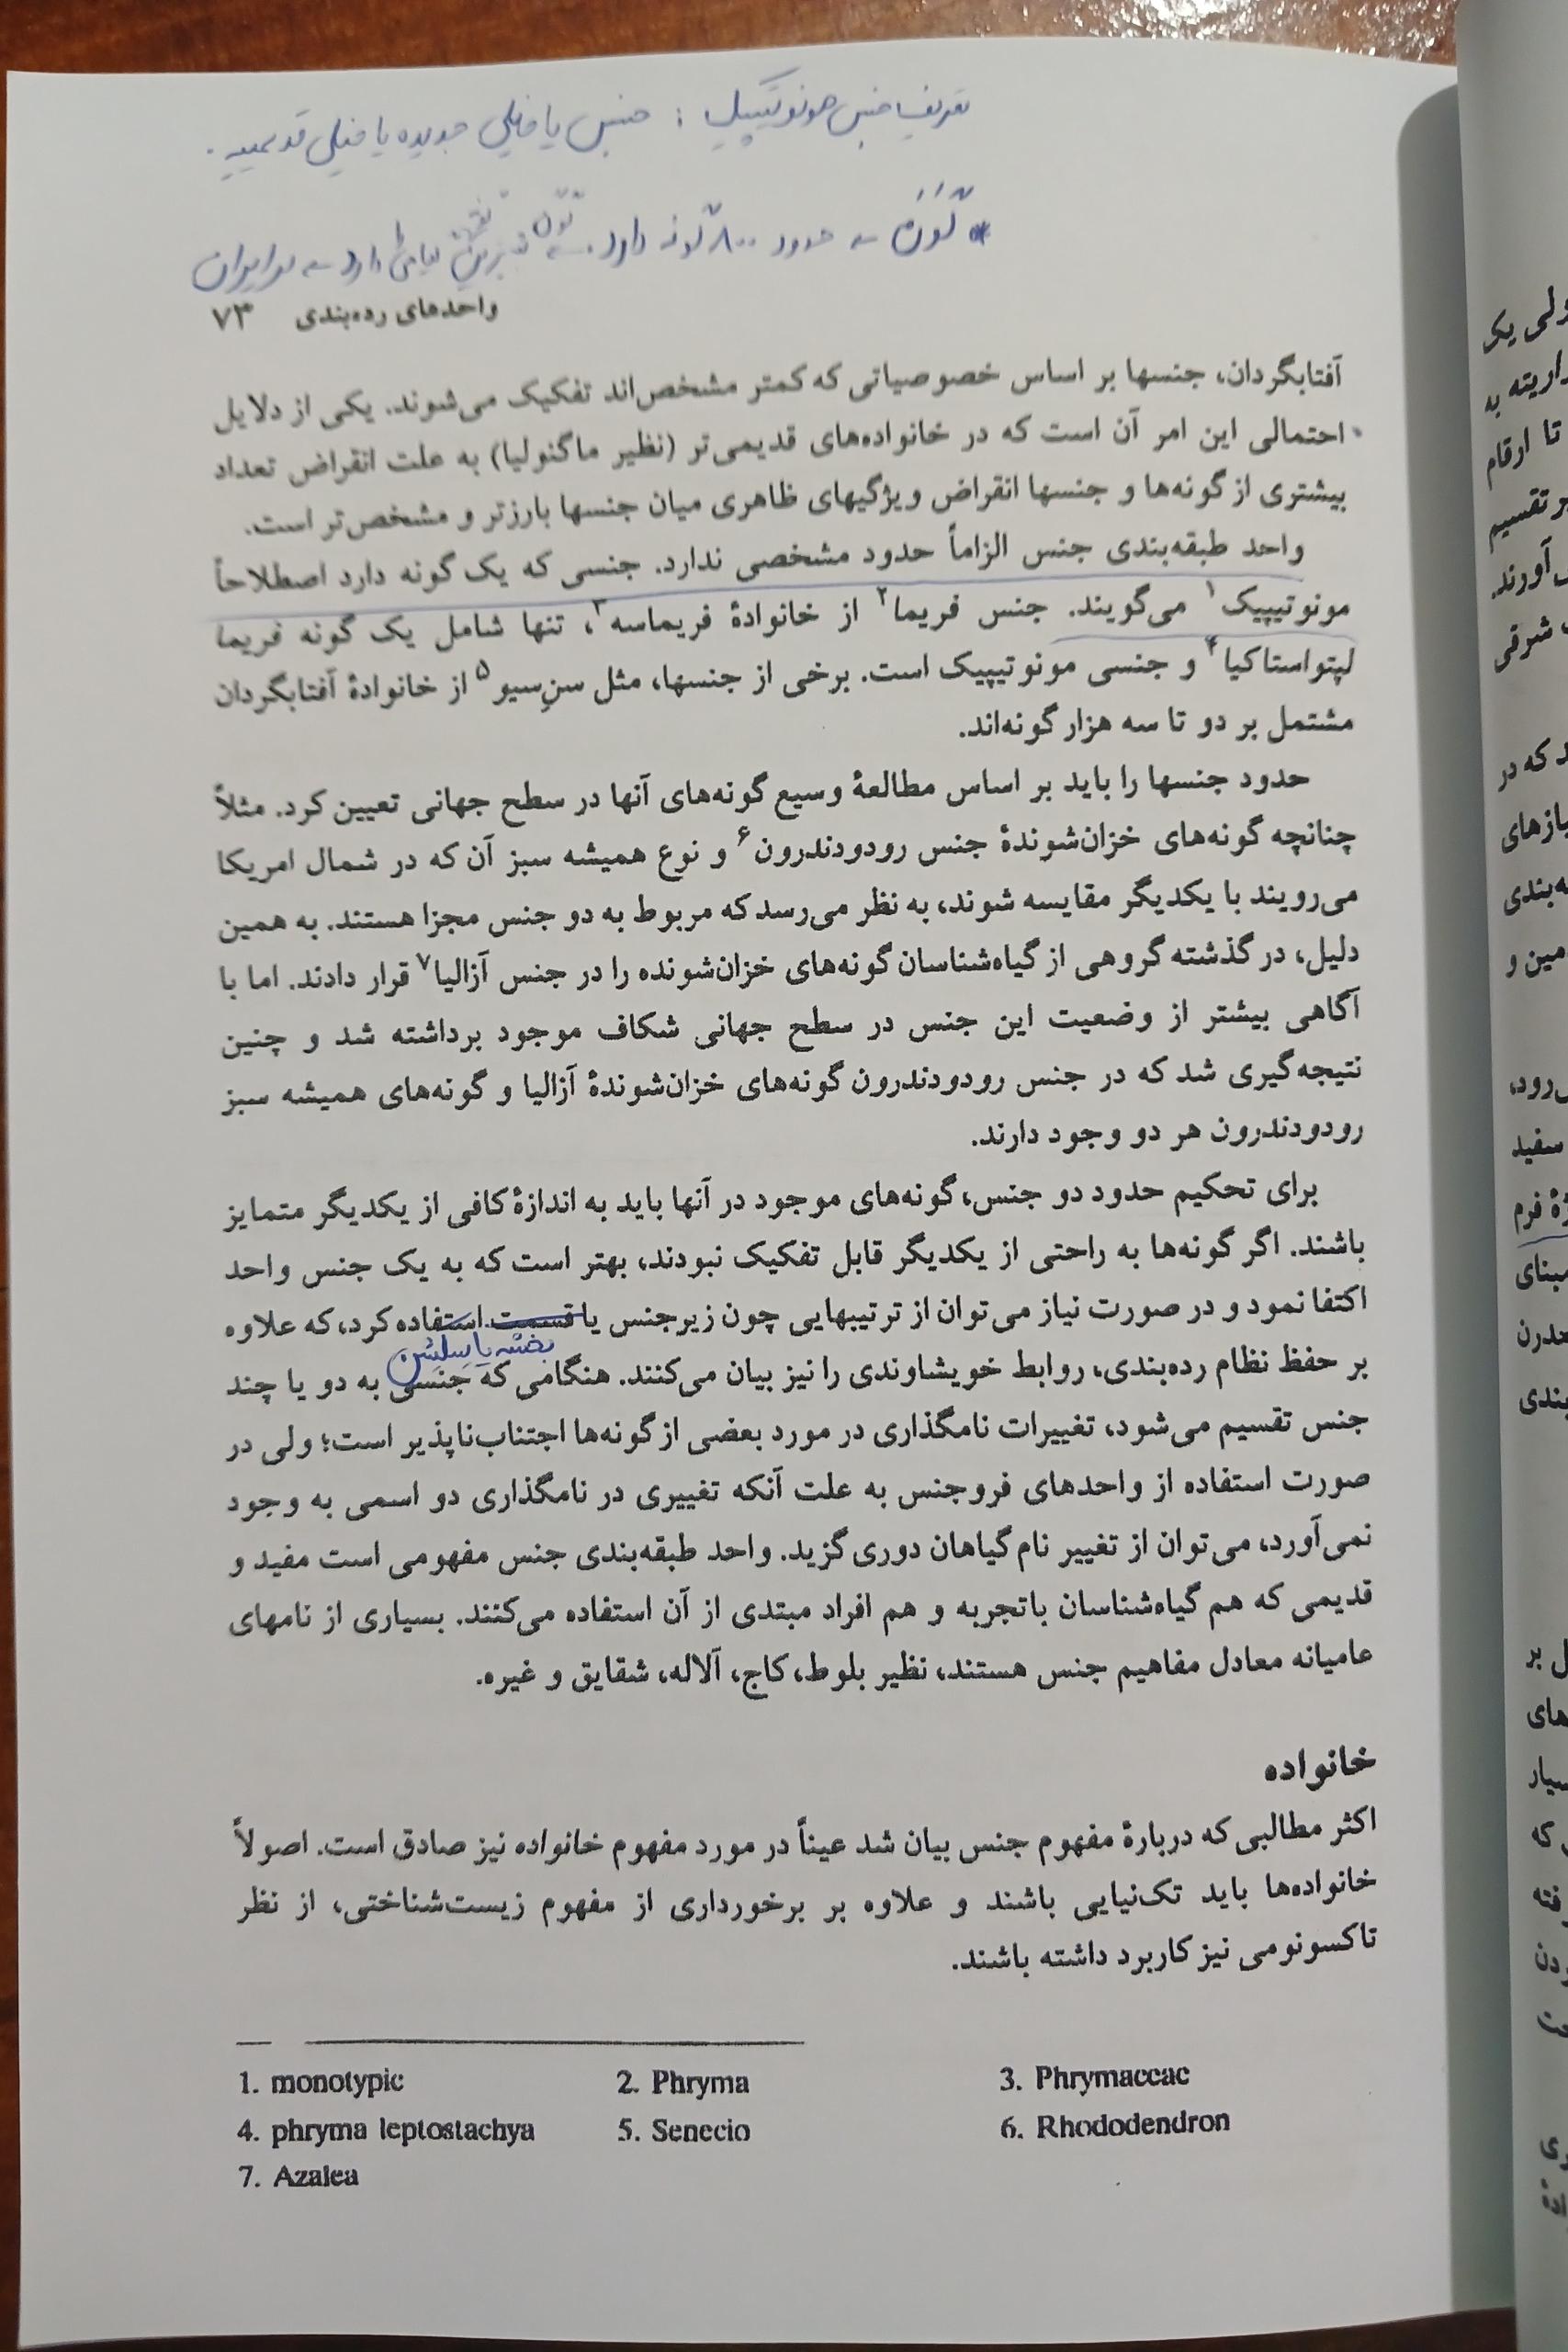 تعریف جنس مونوتیپیک : جنس یا خیلی جدیده یا خیلی قدیمیه .
* گَوَن ← حدود ۸۰۰ گونه دارد. گون نقش دارد ← در ایران
واحدهای رده‌بندی ۷۳
آفتابگردان، جنسها بر اساس خصوصیاتی که کمتر مشخص‌اند تفکیک می‌شوند. یکی از دلایل
احتمالی این امر آن است که در خانواده‌های قدیمی‌تر (نظیر ماگنولیا) به علت انقراض تعداد
بیشتری از گونه‌ها و جنسها انقراض ویژگیهای ظاهری میان جنسها بارزتر و مشخص‌تر است.
واحد طبقه‌بندی جنس الزاماً حدود مشخصی ندارد. جنسی که یک گونه دارد اصطلاحاً
مونوتیپیک۱ می‌گویند. جنس فریما۲ از خانوادهٔ فریماسه۳، تنها شامل یک گونه فریما
لپتواستاکیا۴ و جنسی مونوتیپیک است. برخی از جنسها، مثل سنِ‌سیو۵ از خانوادهٔ آفتابگردان
مشتمل بر دو تا سه هزار گونه‌اند.
حدود جنسها را باید بر اساس مطالعهٔ وسیع گونه‌های آنها در سطح جهانی تعیین کرد. مثلاً
چنانچه گونه‌های خزان‌شوندهٔ جنس رودودندرون۶ و نوع همیشه سبز آن که در شمال امریکا
می‌رویند با یکدیگر مقایسه شوند، به نظر می‌رسد که مربوط به دو جنس مجزا هستند. به همین
دلیل، در گذشته گروهی از گیاه‌شناسان گونه‌های خزان‌شونده را در جنس آزالیا۷ قرار دادند. اما با
آگاهی بیشتر از وضعیت این جنس در سطح جهانی شکاف موجود برداشته شد و چنین
نتیجه‌گیری شد که در جنس رودودندرون گونه‌های خزان‌شوندهٔ آزالیا و گونه‌های همیشه سبز
رودودندرون هر دو وجود دارند.
برای تحکیم حدود دو جنس، گونه‌های موجود در آنها باید به اندازهٔ کافی از یکدیگر متمایز
باشند. اگر گونه‌ها به راحتی از یکدیگر قابل تفکیک نبودند، بهتر است که به یک جنس واحد
اکتفا نمود و در صورت نیاز می‌توان از ترتیبهایی چون زیرجنس یا قسمت استفاده کرد، که علاوه
بخشه یا سکشن
بر حفظ نظام رده‌بندی، روابط خویشاوندی را نیز بیان می‌کنند. هنگامی که جنسی به دو یا چند
جنس تقسیم می‌شود، تغییرات نامگذاری در مورد بعضی از گونه‌ها اجتناب‌ناپذیر است؛ ولی در
صورت استفاده از واحدهای فروجنس به علت آنکه تغییری در نامگذاری دو اسمی به وجود
نمی‌آورد، می‌توان از تغییر نام گیاهان دوری گزید. واحد طبقه‌بندی جنس مفهومی است مفید و
قدیمی که هم گیاه‌شناسان باتجربه و هم افراد مبتدی از آن استفاده می‌کنند. بسیاری از نامهای
عامیانه معادل مفاهیم جنس هستند، نظیر بلوط، کاج، آلاله، شقایق و غیره.
خانواده
اکثر مطالبی که دربارهٔ مفهوم جنس بیان شد عیناً در مورد مفهوم خانواده نیز صادق است. اصولاً
خانواده‌ها باید تک‌نیایی باشند و علاوه بر برخورداری از مفهوم زیست‌شناختی، از نظر
تاکسونومی نیز کاربرد داشته باشند.
1. monotypic 2. Phryma 3. Phrymaceae
4. phryma leptostachya 5. Senecio 6. Rhododendron
7. Azalea